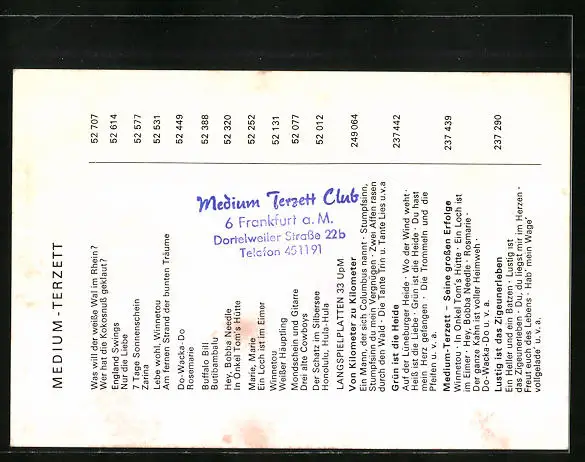 MEDIUM-TERZETT
Was will der weiße Wal im Rhein? 52 707
Wer hat die Kokosnuß geklaut?
England Swings 52 614
Nur die Liebe
7 Tage Sonnenschein 52 577
Zarina
Lebe wohl, Winnetou 52 531
Am fernen Strand der bunten Träume
Do-Wacka-Do 52 449
Rosemarie
Buffalo Bill 52 388
Butibambalu
Hey, Bobba Needle 52 320
In Onkel Tom's Hütte
Marie, Marie 52 252
Ein Loch ist im Eimer
Winnetou 52 131
Weißer Häuptling
Mondschein und Gitarre 52 077
Drei alte Cowboys
Der Schatz im Silbersee 52 012
Honolulu, Hula-Hula
LANGSPIELPLATTEN 33 UpM
Von Kilometer zu Kilometer 249 064
Ein Mann, der sich Columbus nannt · Stumpfsinn,
Stumpfsinn du mein Vergnügen · Zwei Affen rasen
durch den Wald · Die Tante Trin u. Tante Lies u.v.a
Grün ist die Heide 237 442
Auf der Lüneburger Heide · Wo der Wind weht ·
Heiß ist die Liebe · Grün ist die Heide · Du hast
mein Herz gefangen · Die Trommeln und die
Pfeifen u. v. a.
Medium-Terzett – Seine großen Erfolge 237 439
Winnetou · In Onkel Tom's Hütte · Ein Loch ist
im Eimer · Hey, Bobba Needle · Rosmarie ·
Der ganze Kahn ist voller Heimweh ·
Do-Wacka-Do u. v. a.
Lustig ist das Zigeunerleben 237 290
Ein Heller und ein Batzen · Lustig ist
das Zigeunerleben · Du, du liegst mir im Herzen ·
Freut euch des Lebens · Hab' mein Wage'
vollgelade' u. v. a.
Medium Terzett Club
6 Frankfurt a. M.
Dortelweiler Straße 22b
Telefon 451191